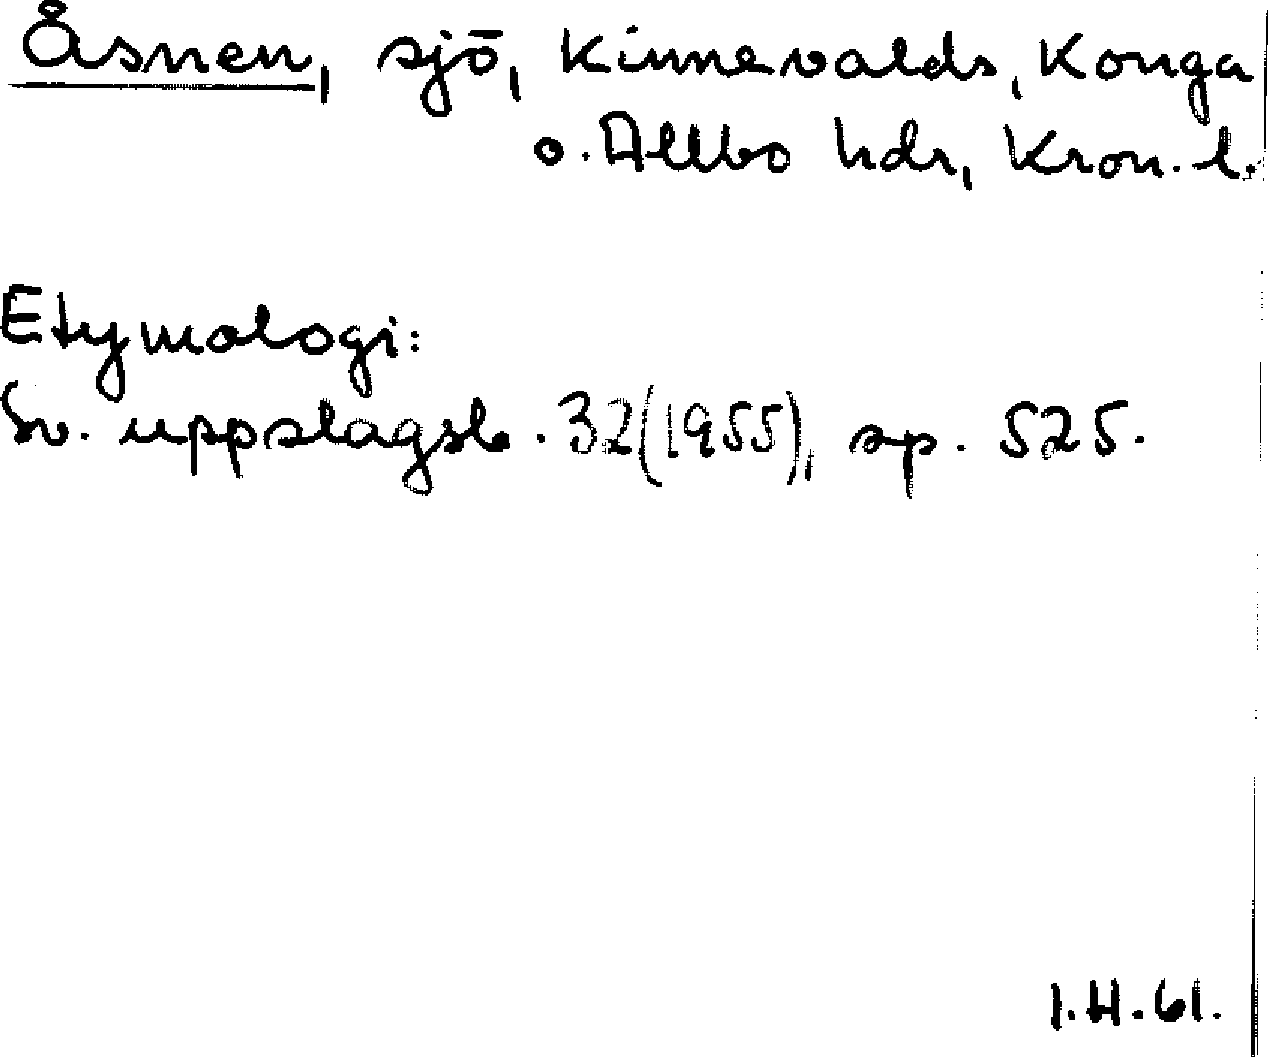 Åsnen, sjö, Kinnevalds, Konga
o. Allbo hdr, Kron. l.
Etymologi:
Sv. uppslagsb. 32(1955), sp. 525.
I.H.61.